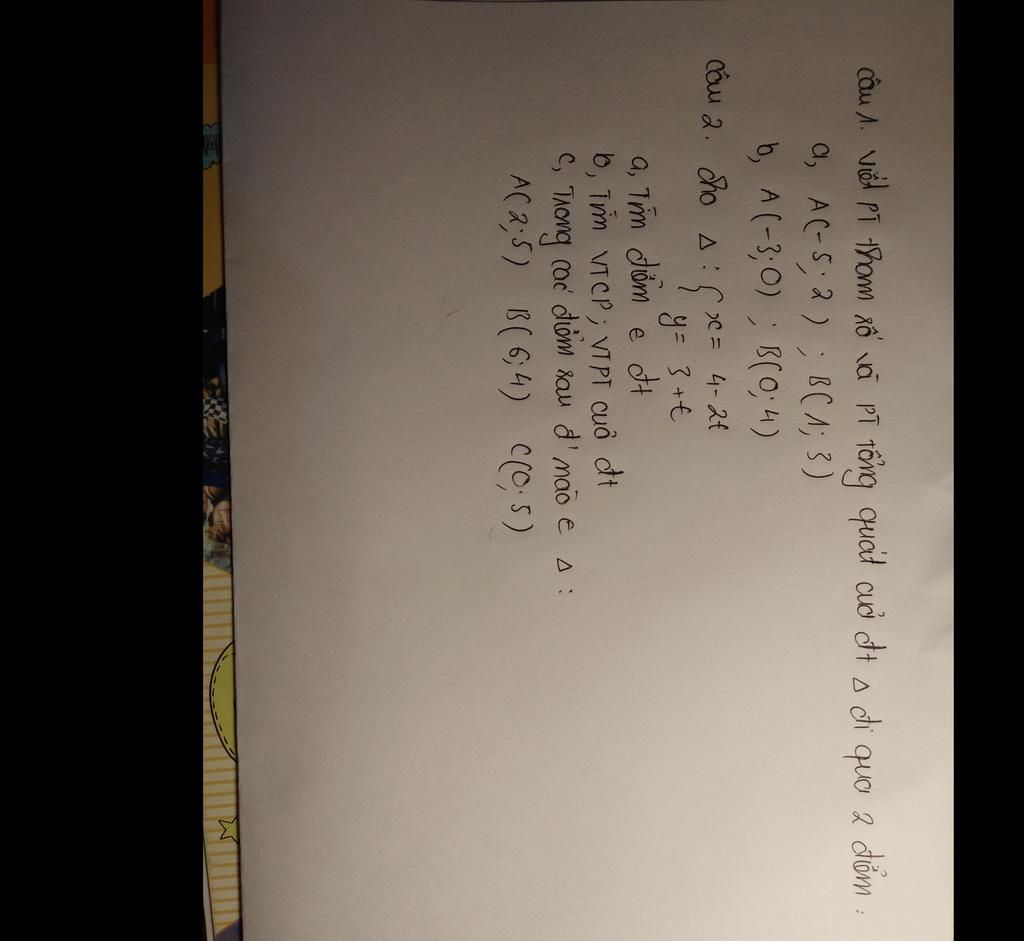 Câu 1. Viết PT tham số và PT tổng quát của đt Δ đi qua 2 điểm:
a, A(-5; 2) ; B(1; 3)
b, A(-3; 0) ; B(0; 4)
Câu 2. Cho Δ: { x = 4 - 2t
y = 3 + t
a, Tìm điểm ∈ đt
b, Tìm VTCP; VTPT của đt
c, Trong các điểm sau đ' nào ∈ Δ:
A(2; 5) B(6; 4) C(0; 5)